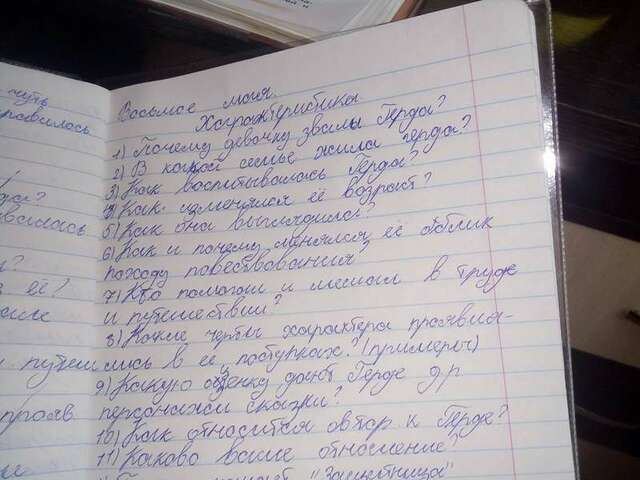 Восьмое мая
Характеристика
1) Почему девочку звали Герда?
2) В какой семье жила герда?
3) Как воспитывалась Герда?
4) Как изменялся её возраст?
5) Как она выглядила?
6) Как и почему менялся её облик
походу повествования?
7) Кто помогал и мешал в труде
и путешествии?
8) Какие черты характера проявил-
лись в её поступках? (примеры)
9) Какую оценку дают Герде др
персонажи сказки?
10) Как относится автор к Герде?
11) Каково ваше отношение?
чуть
её?
путеш
прояв